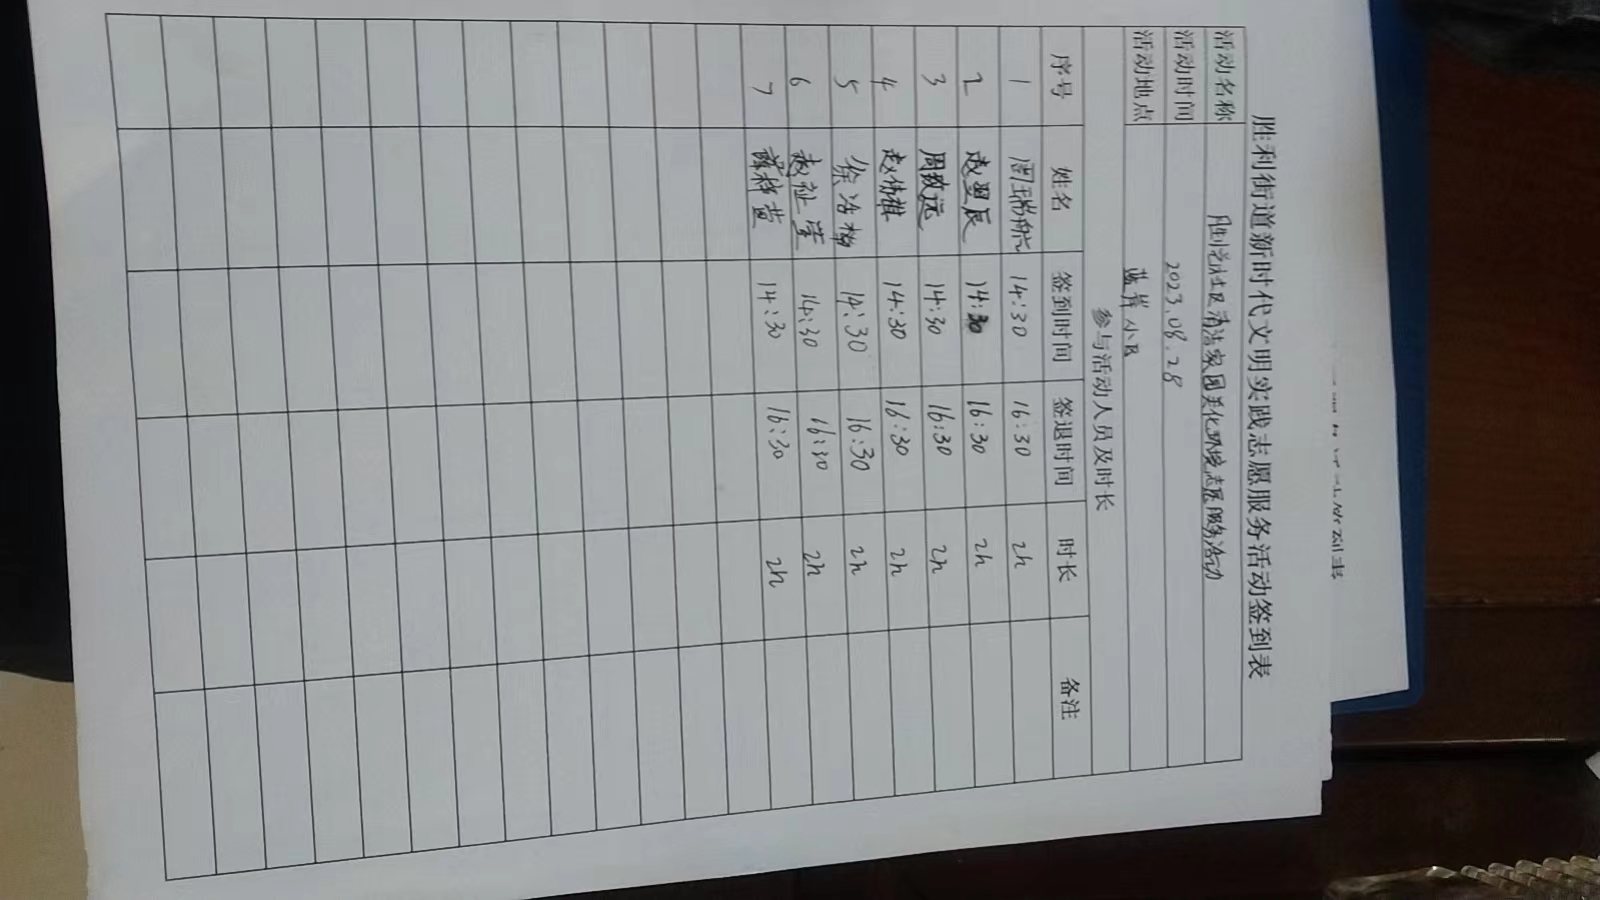 胜利街道新时代文明实践志愿服务活动签到表
活动名称 胜兴社区清洁家园美化环境志愿服务活动
活动时间 2023.08.28
活动地点 小区
参与活动人员及时长
序号 姓名 签到时间 签退时间 时长 备注
1 周瑞航 14:30 16:30 2h
2 赵翌辰 14:30 16:30 2h
3 周致远 14:30 16:30 2h
4 赵倩棋 14:30 16:30 2h
5 徐浩楠 14:30 16:30 2h
6 赵祉莹 14:30 16:30 2h
7 薛梓萱 14:30 16:30 2h